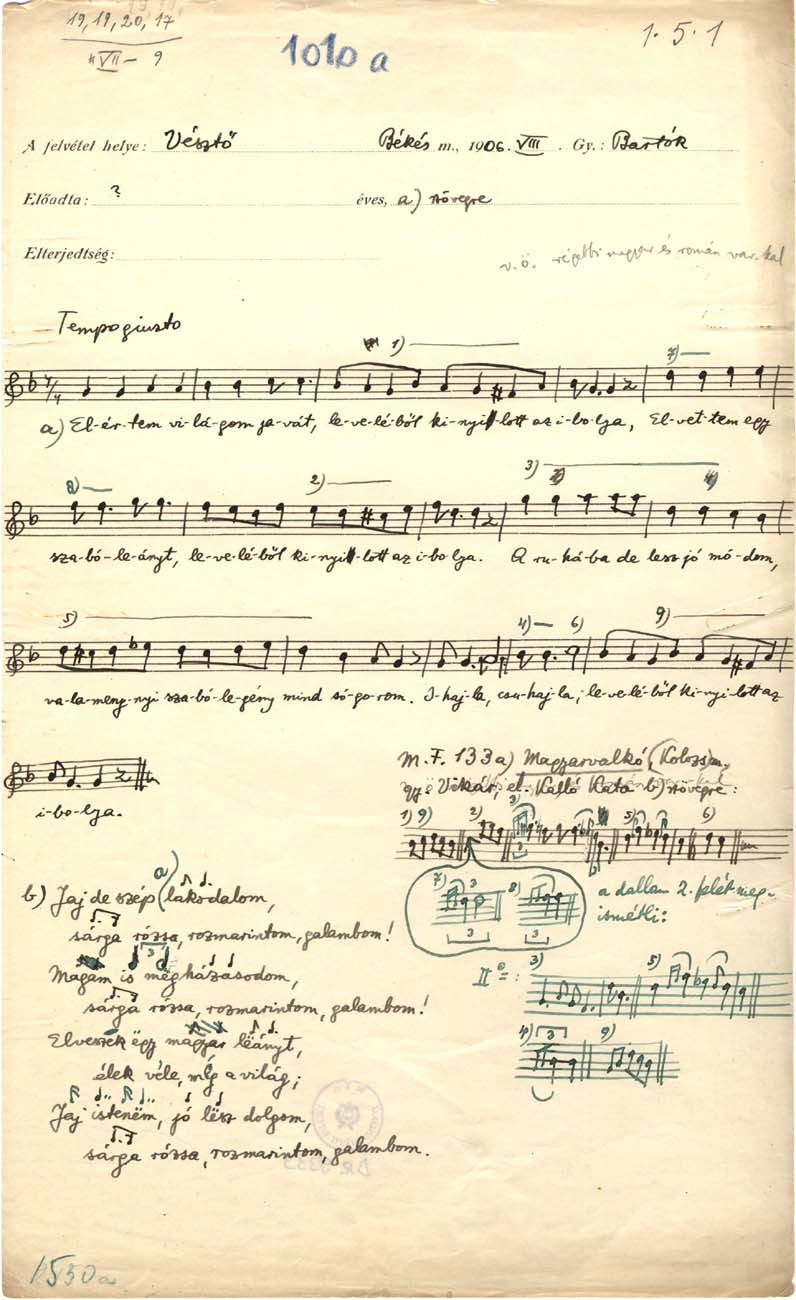 19, 19, 20, 17
VII – 9
1010 a
1. 5. 1
A felvétel helye: Vésztő Békés m., 1906. VIII. Gy.: Bartók
Előadta: ? éves, a) szövegre
Elterjedtség:
v.ö. régebbi magyar és román var.kal
Tempo giusto
1)
7)
a) El-ér-tem vi-lá-gom ja-vát, le-ve-lé-ből ki-nyi-lott az i-bo-lya, El-vet-tem egy
8)
2)
3)
4)
sza-bó-le-ányt, le-ve-lé-ből ki-nyi-lott az i-bo-lya. A ru-há-ba de lesz jó mó-dom,
5)
4)
6)
9)
va-la-meny-nyi sza-bó-le-gény mind só-go-rom. I-haj-la, csu-haj-la, le-ve-lé-ből ki-nyi-lott az
i-bo-lya.
M. F. 133a) Magyarvalkó, (Kolozs m.,
gy. Vikár, el. Kalló Kata b) szövegre:
1) 9) 2) 3) 5) 6)
7) 3 8) 3
a dallam 2. felét meg-
ismétli:
II°=: 3) 5)
4) 3 9)
b) Jaj de szép a lakodalom,
sárga rózsa, rozmarintom, galambom!
Magam is megházasodom,
sárga rózsa, rozmarintom, galambom!
Elveszek ëgy magyar lëányt,
élek véle, míg a világ;
Jaj istenëm, jó lësz dolgom,
sárga rózsa, rozmarintom, galambom.
1530a